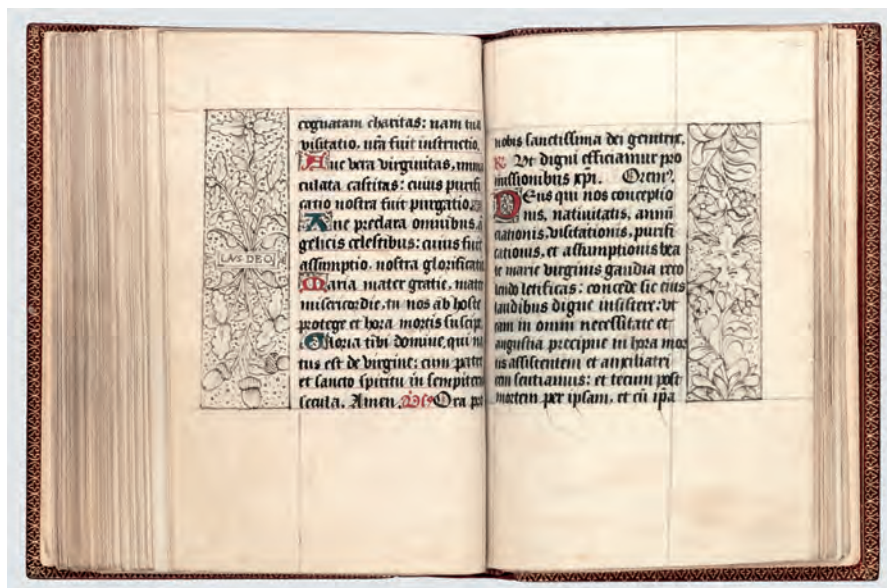 LAVS DEO
cognatam charitas: nam tua
visitatio, nr̃a fuit instructio.
Aue vera virginitas, imma
culata castitas: cuius purifi
catio nostra fuit purgatio.
Aue preclara omnibus, ã
gelicis celestibus: cuius fuit
assumptio, nostra glorificatio
Maria mater gratie, mater
misericordie, tu nos ab hoste
protege et hora mortis suscipe.
Gloria tibi domine, qui na
tus est de virgine: cum patre
et sancto spiritu in sempiterna
secula. Amen. Ora pro
nobis sanctissima dei genitrix.
R Vt digni efficiamur pro
missionibus xp̃i. Orem⁹.
Deus qui nos conceptio
nis, natiuitatis, annũ
ciationis, visitationis, purifi
cationis, et assumptionis bea
te marie virginis gaudia reco
lendo letificas: concede sic eius
laudibus digne insistere: vt
eam in omni necessitate et
angustia precipue in hora mor
tis assistentem et auxiliatri
cem sentiamus: et tecum post
mortem per ipsam, et cũ ip̃a